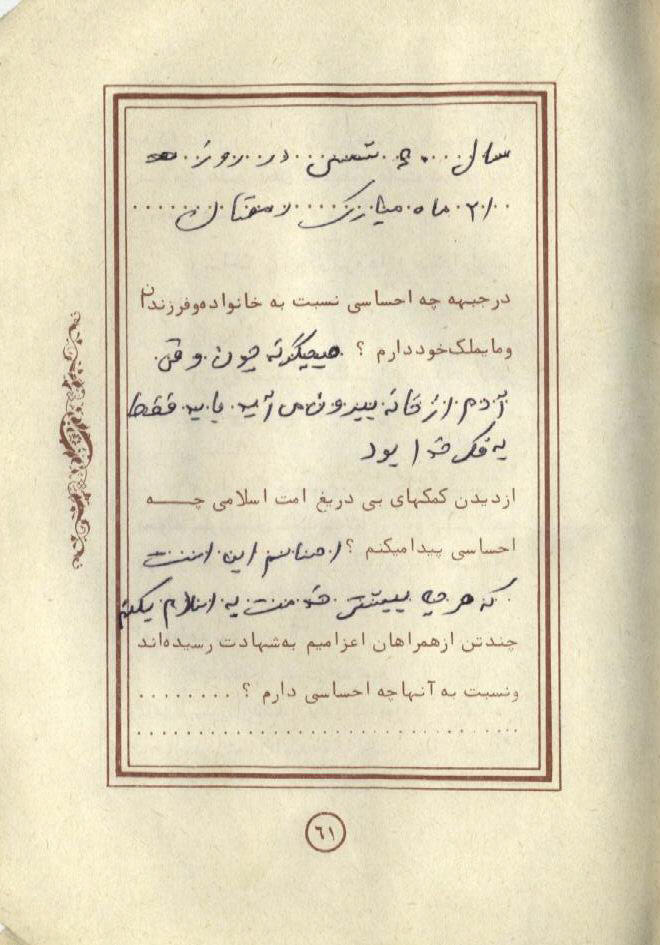 سال ۶۰ شمسی در روز
۲۱ ماه مبارک رمضان
درجبهه چه احساسی نسبت به خانواده وفرزندان
ومایملک خود دارم ؟ هیچگونه چون وقتی
آدم از خانه بیرون می آید باید فقط
به فکر خدا بود
ازدیدن کمکهای بی دریغ امت اسلامی چه
احساسی پیدا میکنم ؟ احساسم این است
که هر چه بیشتر خدمت به اسلام بکنم
چندتن از همراهان اعزامیم به شهادت رسیده اند
ونسبت به آنها چه احساسی دارم ؟ ........
۶۱